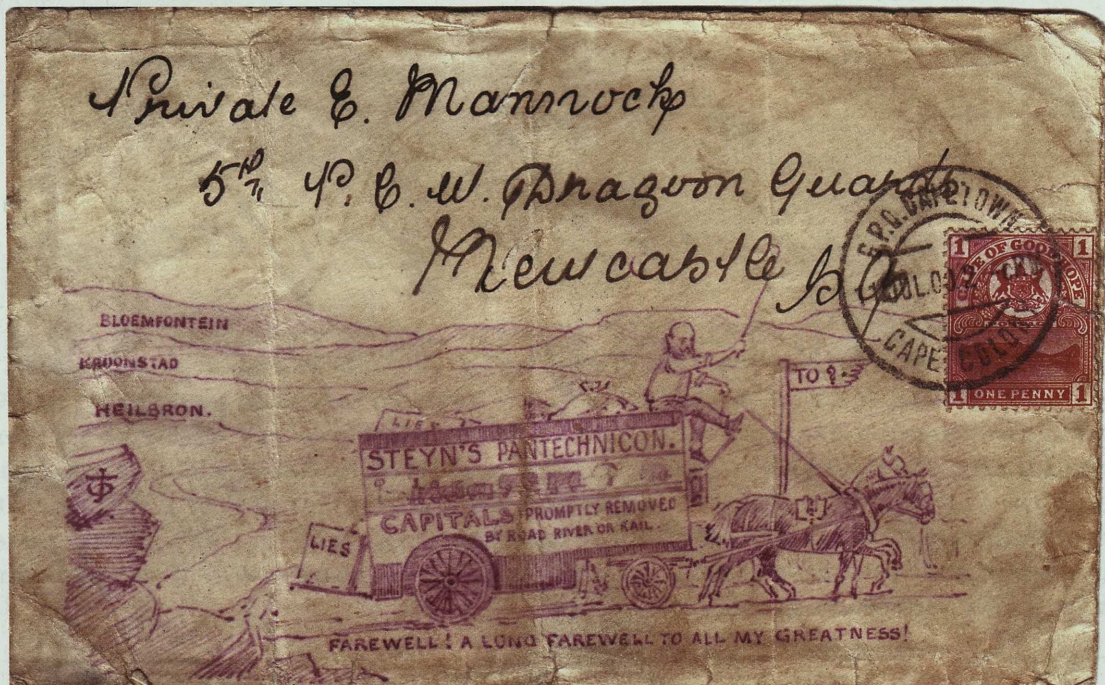 Private E. Mannock
5th P. C. W. Dragoon Guards
Newcastle
G.P.O. CAPETOWN
JUL.
CAPE COLONY
1 1
CAPE OF GOOD HOPE
1 ONE PENNY 1
BLOEMFONTEIN
KROONSTAD
HEILBRON.
TO ?
LIES
STEYN'S PANTECHNICON.
CAPITALS PROMPTLY REMOVED
BY ROAD RIVER OR RAIL.
LIES
FAREWELL! A LONG FAREWELL TO ALL MY GREATNESS!